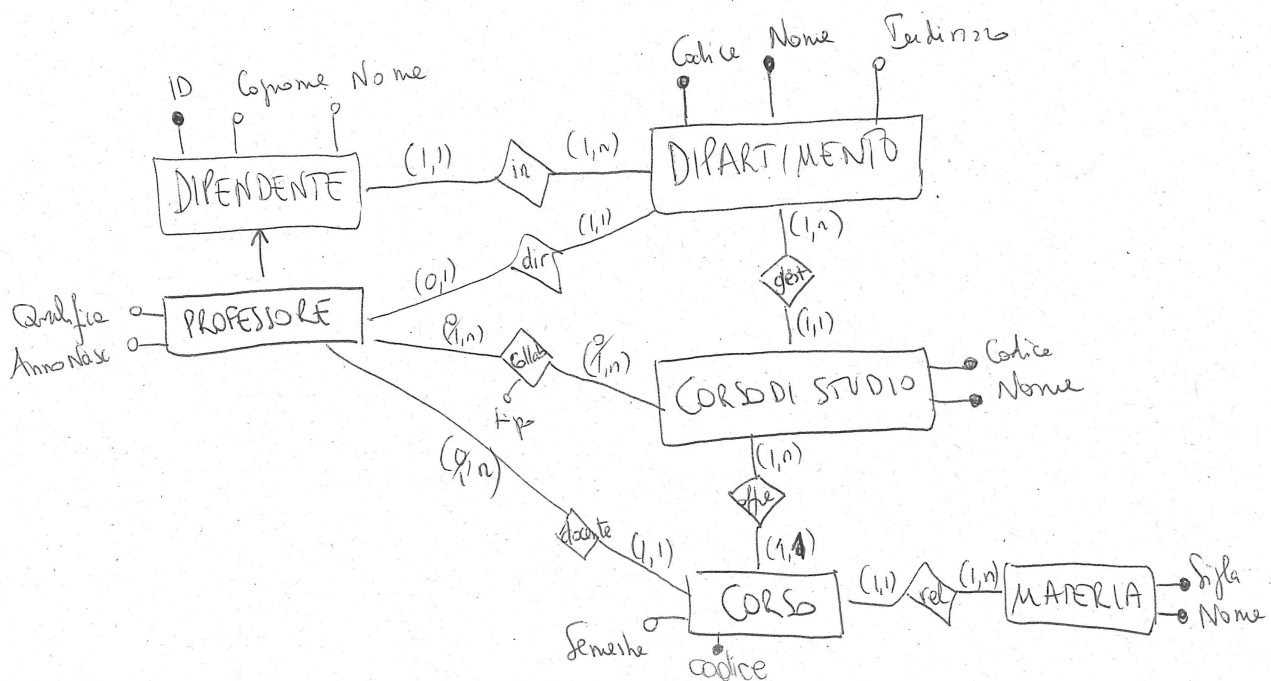 Codice Nome Indirizzo
ID Cognome Nome
DIPENDENTE
(1,1)
in
(1,n)
DIPARTIMENTO
(1,1)
dir
(0,1)
(1,n)
gest
(1,1)
Qualifica
AnnoNasc
PROFESSORE
(0,n)
collab
tipo
(0,n)
CORSO DI STUDIO
Codice
Nome
(1,n)
offre
(1,1)
(0,n)
docente
(1,1)
CORSO
(1,1)
rel
(1,n)
MATERIA
Sigla
Nome
Semestre
codice